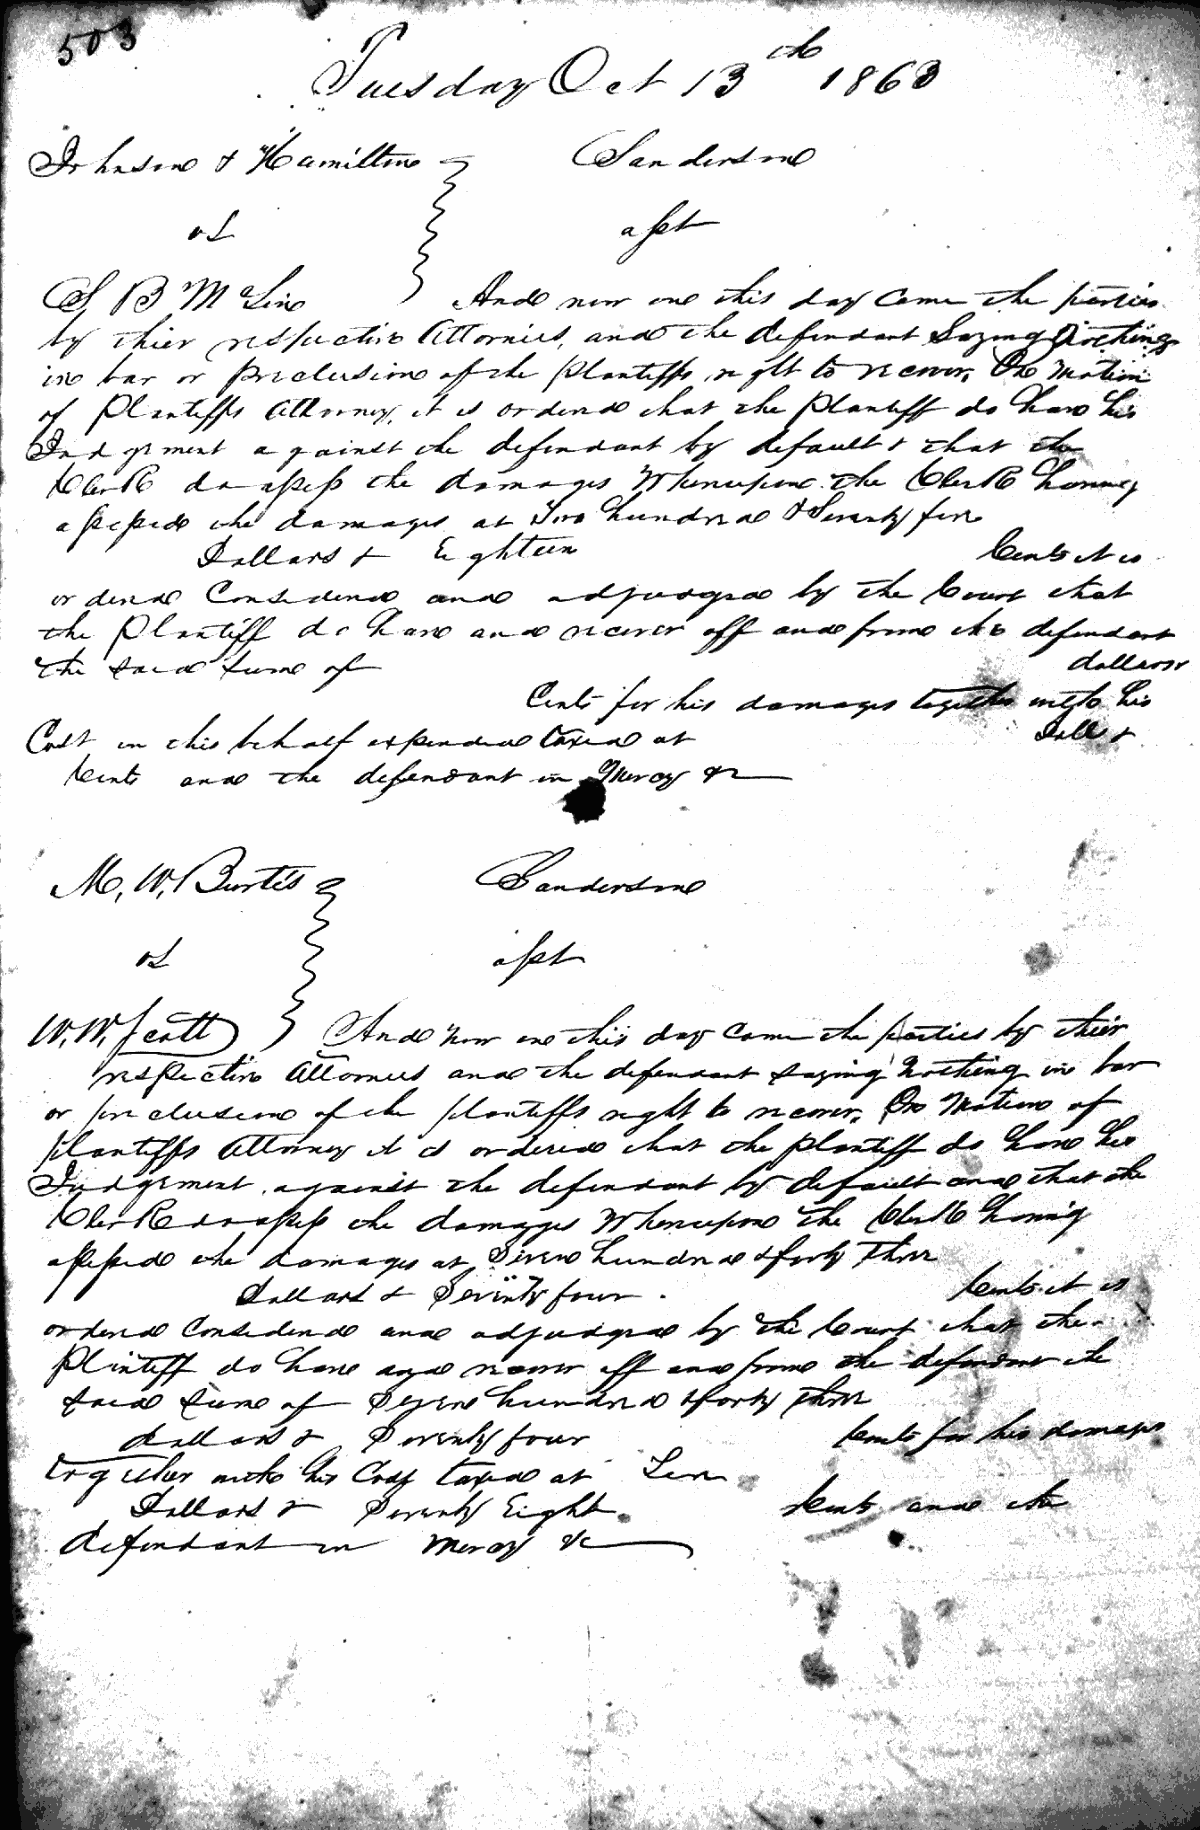 503
Tuesday Oct 13th 1863
Johnson & Hamilton Sanderson
vs asst
S B McLin And now on this day came the parties
by thier respective Attornies, and the defendant Saying Nothing
in bar or preclusion of the Plantiffs right to recover. On Motion
of Plantiffs Attorney, it is ordered that the Plantiff do have his
Judgement against the defendant by default & that the
Clerk do assess the damages Whereupon the Clerk having
assessed the damages at Two hundred & Seventy five
Dollars & Eighteen Cents it is
ordered Considered and adjudged by the Court that
the Plantiff do have and recover off and from the defendant
the said sum of dollars
Cents for his damages together with his
Cost in this behalf expended taxed at Doll &
Cents and the defendant in Mercy &c
M. W. Burtis Sanderson
vs asst
W. W. Scott And now on this day came the parties by thier
respective Attornies and the defendant saying Nothing in bar
or preclusion of the plantiffs right to recover. On Motion of
plantiffs Attorney it is ordered that the plantiff do have his
Judgement against the defendant by default and that the
Clerk do assess the damages Whereupon the Clerk having
assessed the damages at Seven hundred & forty Three
Dollars & Seventy four Cents it is
ordered Considered and adjudged by the Court that the
Plintiff do have and recover off and from the defendant the
said sum of Seven hundred & forty Three
dollars & Seventy four Cents for his damages
together with his Cost taxed at
Dollars & Seventy Eight Cents and the
defendant in mercy &c